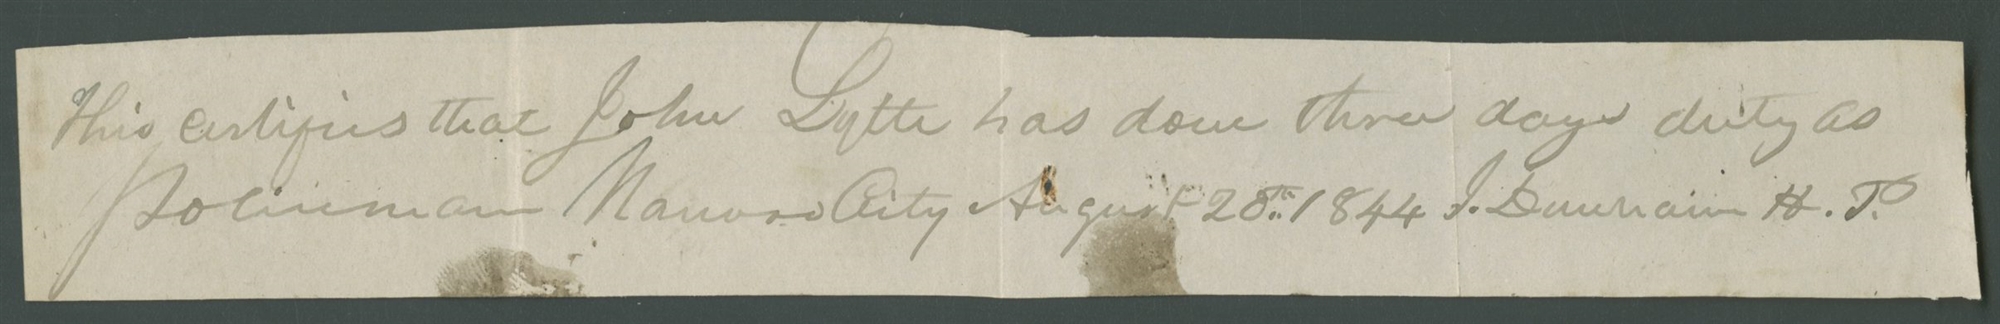 This certifies that John Lytle has done three days duty as
Policeman Nauvoo City August 28th. 1844 J. Dunham H. P.